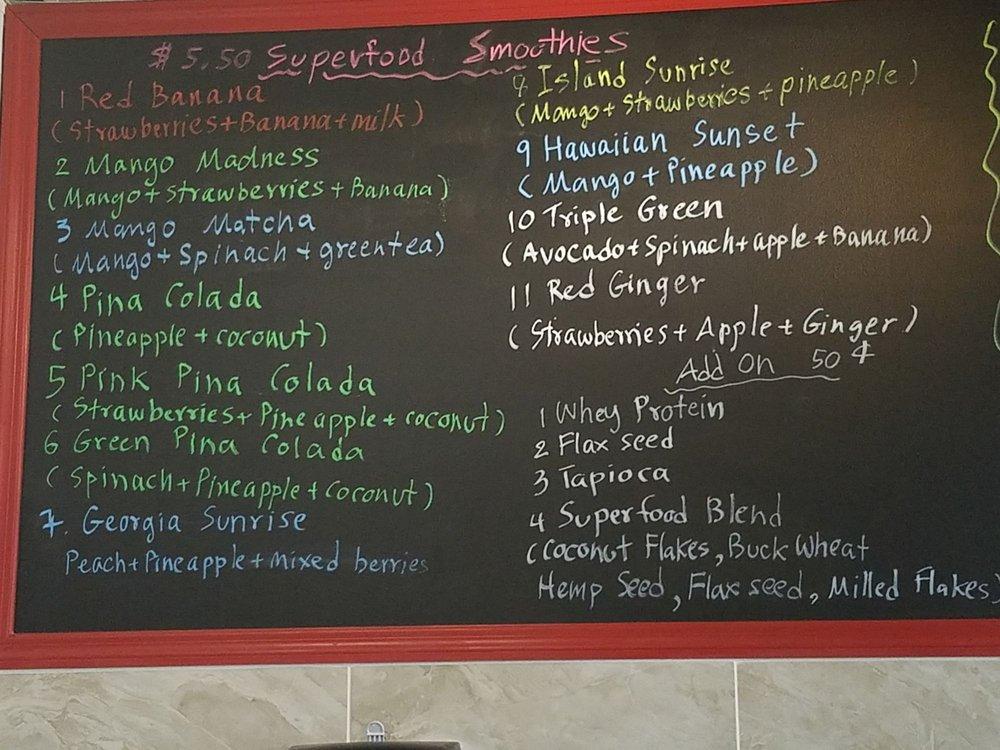 $ 5.50 Superfood Smoothies
1 Red Banana
(Strawberries+Banana+milk)
2 Mango Madness
(Mango+Strawberries+Banana)
3 Mango Matcha
(Mango+Spinach+greentea)
4 Pina Colada
(Pineapple+coconut)
5 Pink Pina Colada
(Strawberries+Pineapple+coconut)
6 Green Pina Colada
(Spinach+Pineapple+coconut)
7. Georgia Sunrise
Peach+Pineapple+mixed berries
8 Island Sunrise
(Mango+Strawberries+pineapple)
9 Hawaiian Sunset
(Mango+Pineapple)
10 Triple Green
(Avocado+Spinach+apple+Banana)
11 Red Ginger
(Strawberries+Apple+Ginger)
Add On 50¢
1 Whey Protein
2 Flax seed
3 Tapioca
4 Superfood Blend
(Coconut Flakes, Buck Wheat
Hemp Seed, Flax seed, Milled Flakes)